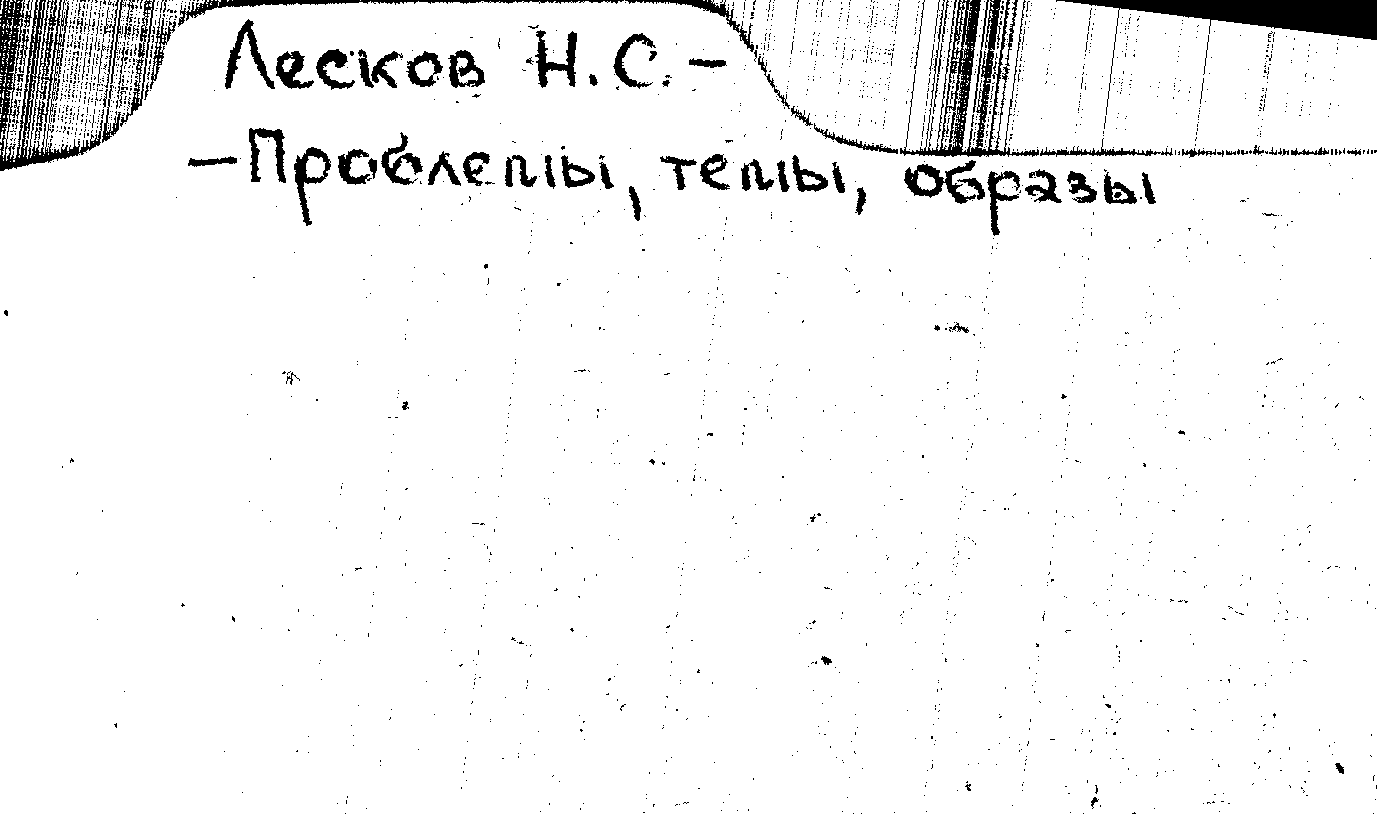 Лесков Н.С. –
– Проблемы, темы, образы